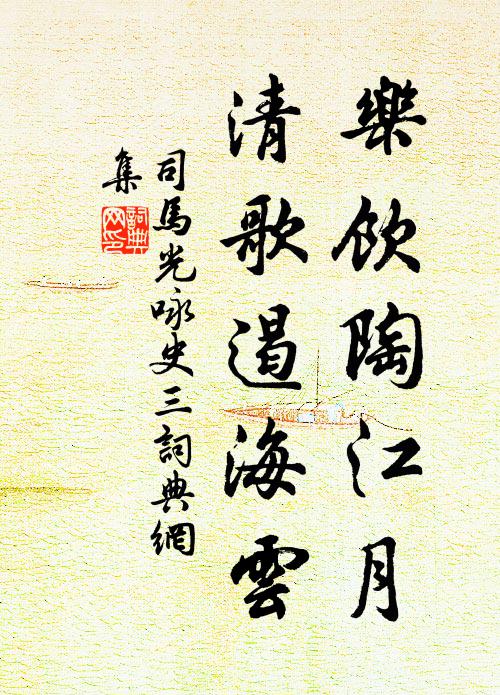 樂飲陶江月
清歌遏海雲
司馬光咏史三詞典網
集
詞典
网印